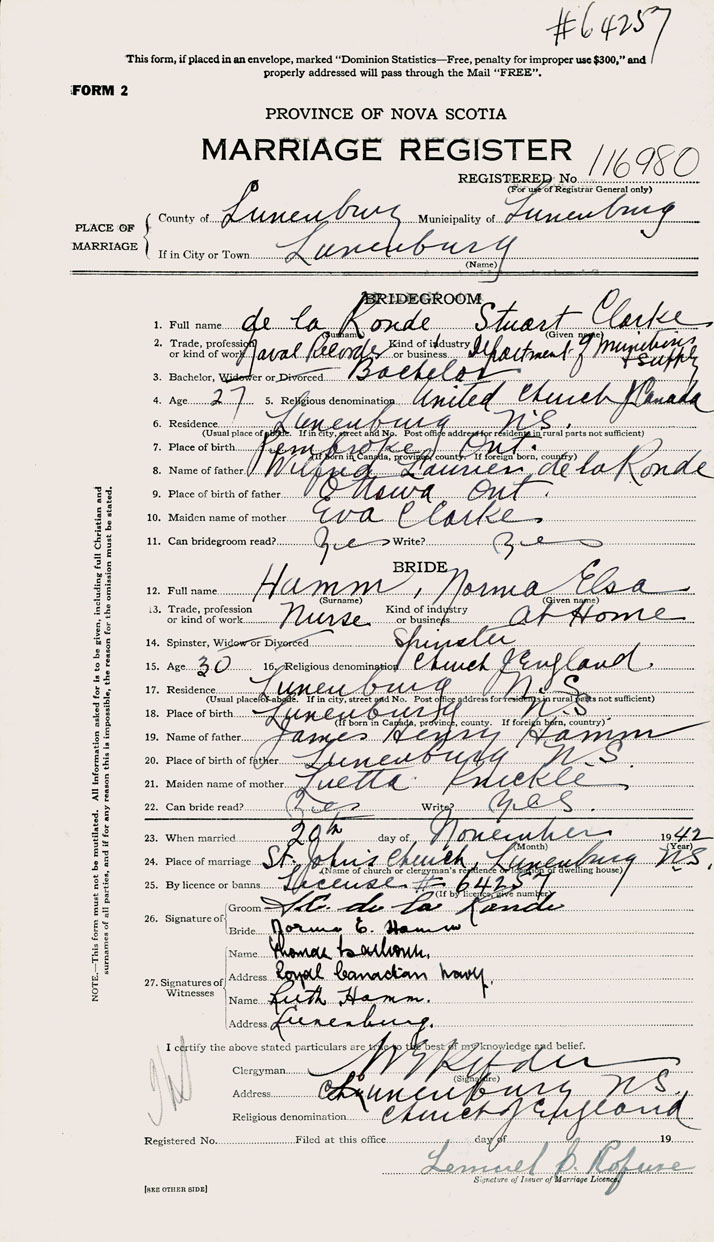 #64257
This form, if placed in an envelope, marked "Dominion Statistics—Free, penalty for improper use $300," and
properly addressed will pass through the Mail "FREE".
FORM 2
PROVINCE OF NOVA SCOTIA
MARRIAGE REGISTER
REGISTERED No. 116980
(For use of Registrar General only)
PLACE OF MARRIAGE
County of Lunenburg Municipality of Lunenburg
If in City or Town Lunenburg
(Name)
BRIDEGROOM
1. Full name de la Ronde Stuart Clarke
(Surname) (Given name)
2. Trade, profession or kind of work Naval Recorder Kind of industry or business Department of Munitions & Supply
3. Bachelor, Widower or Divorced Bachelor
4. Age 27 5. Religious denomination United Church of Canada
6. Residence Lunenburg N.S.
(Usual place of abode. If in city, street and No. Post office address for residents in rural parts not sufficient)
7. Place of birth Pembroke Ont.
(If born in Canada, province, county. If foreign born, country)
8. Name of father Wilfrid Laurier de la Ronde
9. Place of birth of father Ottawa Ont.
10. Maiden name of mother Eva Clarke
11. Can bridegroom read? Yes Write? Yes
BRIDE
12. Full name Hamm, Norma Elsa
(Surname) (Given name)
13. Trade, profession or kind of work Nurse Kind of industry or business At Home
14. Spinster, Widow or Divorced Spinster
15. Age 30 16. Religious denomination Church of England.
17. Residence Lunenburg N.S.
(Usual place of abode. If in city, street and No. Post office address for residents in rural parts not sufficient)
18. Place of birth Lunenburg N.S
(If born in Canada, province, county. If foreign born, country)
19. Name of father James Henry Hamm
20. Place of birth of father Lunenburg N.S.
21. Maiden name of mother Luetta Knickle
22. Can bride read? Yes Write? Yes.
23. When married 20th day of November 1942
(Month) (Year)
24. Place of marriage St. John's Church, Lunenburg N.S.
(Name of church or clergyman's residence or location of dwelling house)
25. By licence or banns License # 64257
(If by licence, give number)
26. Signature of
Groom St. de la Ronde
Bride Norma E. Hamm
27. Signatures of Witnesses
Name Thomas
Address Royal Canadian Navy.
Name Ruth Hamm.
Address Lunenburg.
I certify the above stated particulars are true to the best of my knowledge and belief.
Clergyman W E Ryder
(Signature)
Address Lunenburg N.S.
Religious denomination Church of England
Registered No. Filed at this office day of 19
Lemuel
Signature of Issuer of Marriage Licence.
[SEE OTHER SIDE]
NOTE.—This form must not be mutilated. All Information asked for is to be given, including full Christian and
surnames of all parties, and if for any reason this is impossible, the reason for the omission must be stated.